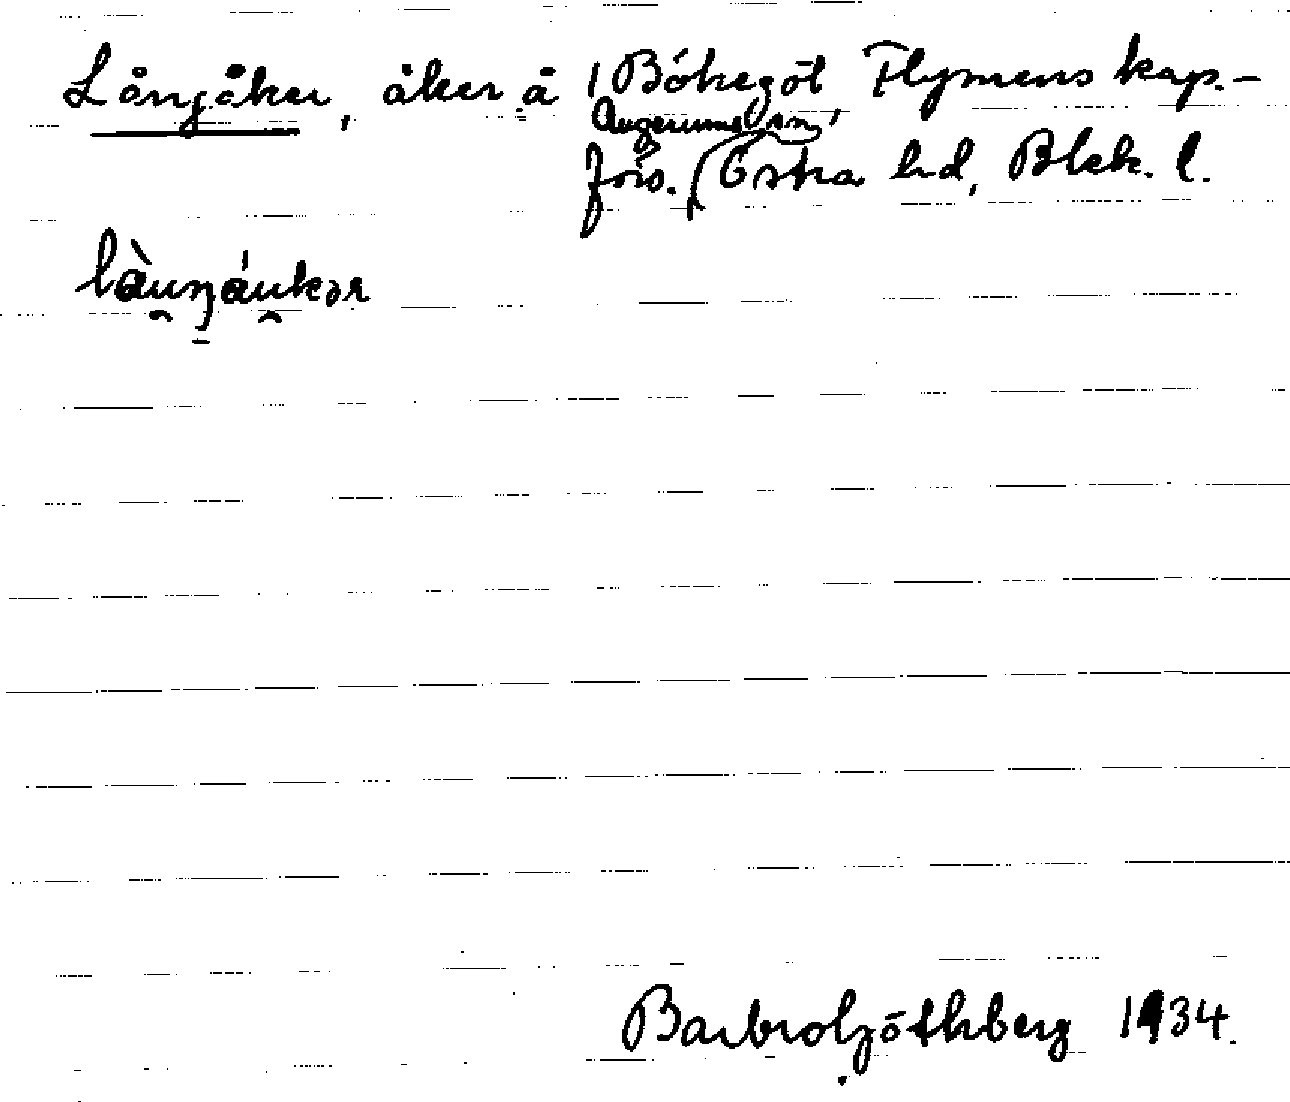 Långåker, åker å 1 Bökegöl, Flymens kap.-
Augerums sn,
förs. Östra hd, Blek. l.
làu̯ŋáu̯kər
Barbro Göthberg 1934.